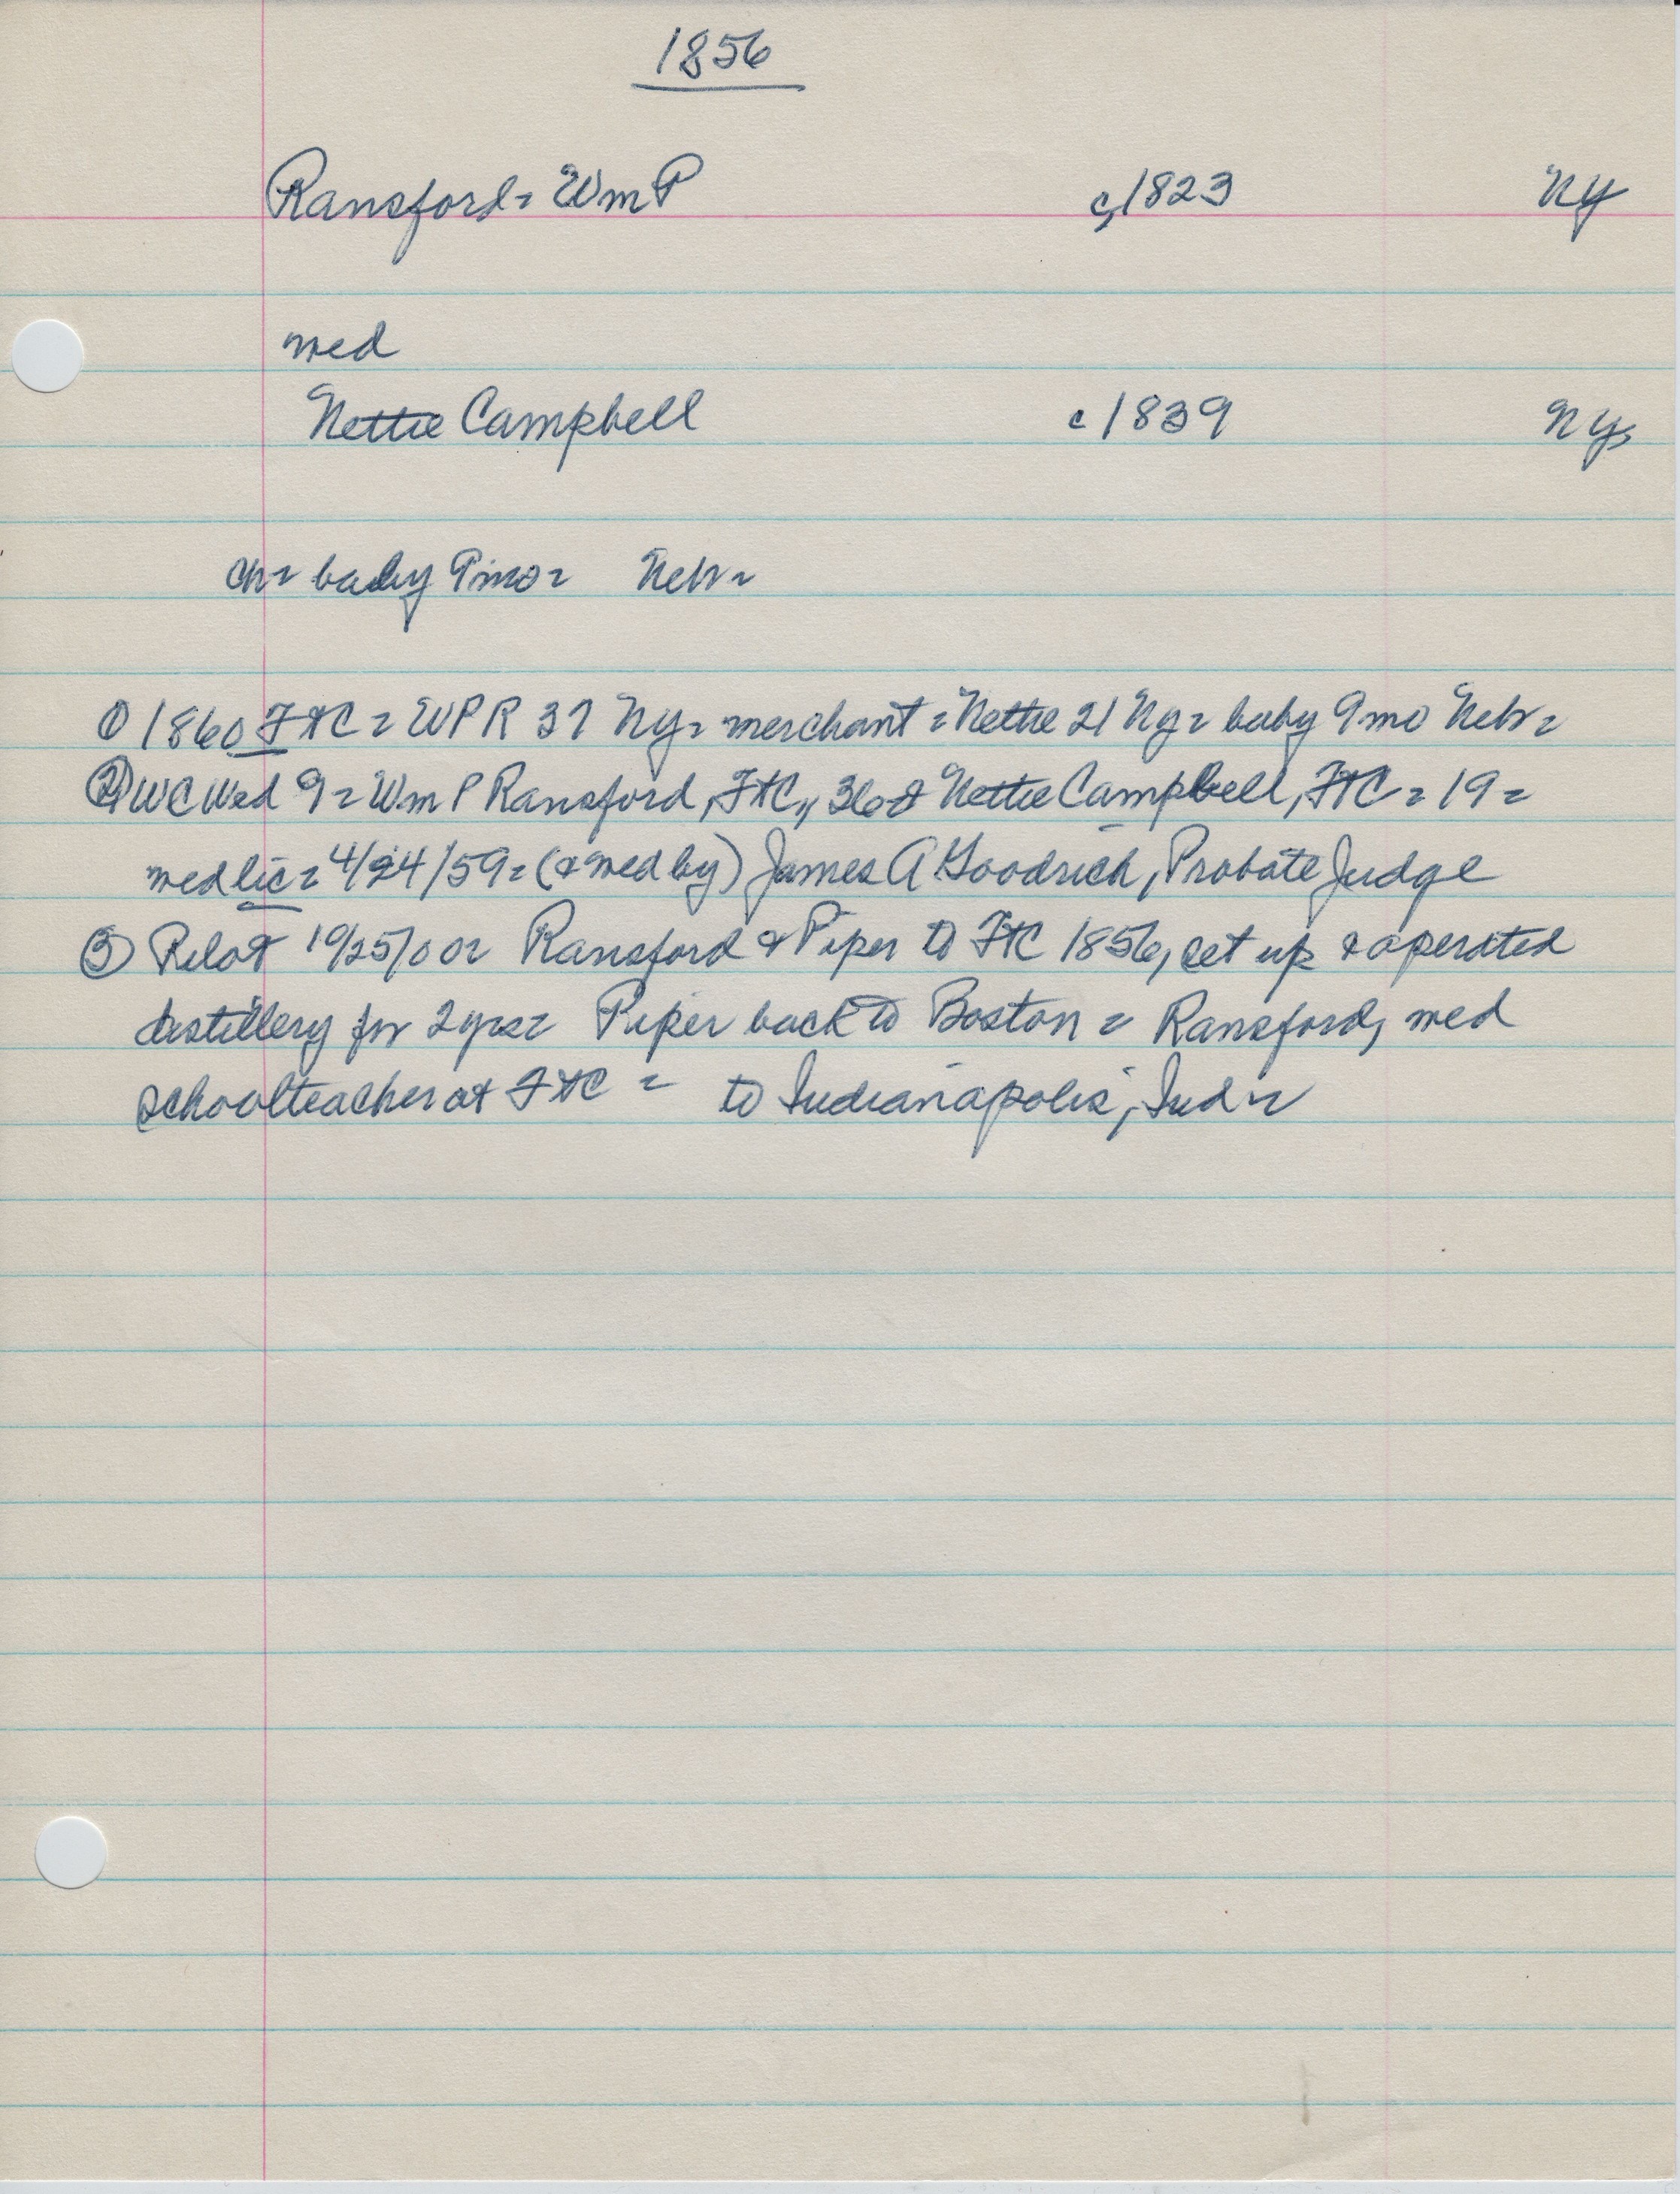 1856
Ransford = Wm P c, 1823 NY
med
Nettie Campbell c 1839 Ny,
ch = baby 9 mo = Nebr =
① 1860 FtC = WPR 37 Ny = merchant = Nettie 21 Ny = baby 9 mo Nebr =
② WC Wed 9 = Wm P Ransford, FtC,, 36 & Nettie Campbell, FtC = 19 =
med lic = 4/24/59 = (& med by) James A Goodrich, Probate Judge
③ Pilot 10/25/00 = Ransford & Piper to FtC 1856, set up & operated
distillery for 2 yrs = Piper back to Boston = Ransford, med
schoolteacher at FtC = to Indianapolis, Ind =